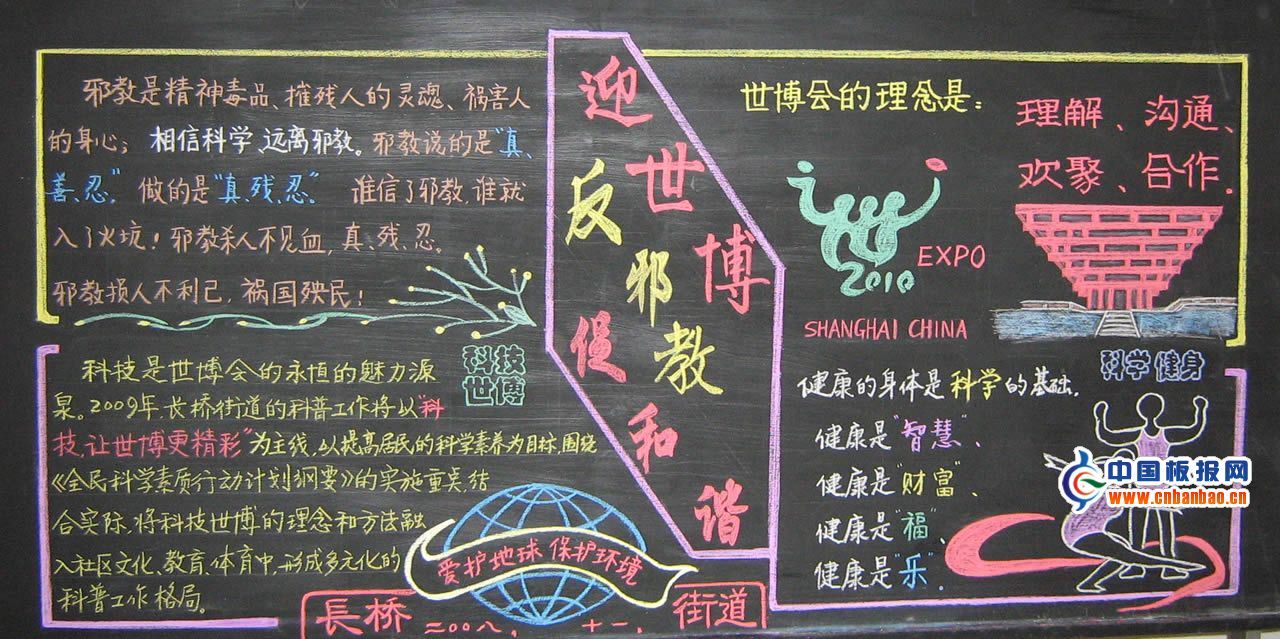 邪教是精神毒品、摧残人的灵魂、祸害人
的身心；相信科学、远离邪教。邪教说的是"真、
善、忍。"做的是"真、残、忍。"谁信了邪教，谁就
入了火坑！邪教杀人不见血，真、残、忍。
邪教损人不利己，祸国殃民！
科技
世博
科技是世博会的永恒的魅力源
泉。2009年，长桥街道的科普工作将以"科
技，让世博更精彩"为主线，以提高居民的科学素养为目标，围绕
《全民科学素质行动计划纲要》的实施重点结
合实际，将科技世博的理念和方法融
入社区文化、教育、体育中，形成多元化的
科普工作格局。
爱护地球 保护环境
長桥 街道
二00八，十一，
迎世博
反邪教
促和谐
世博会的理念是：
理解、沟通、
欢聚、合作。
EXPO
2010
SHANGHAI CHINA
科学健身
健康的身体是科学的基础。
健康是"智慧"、
健康是"财富"、
健康是"福"、
健康是"乐"。
中国板报网
www.cnbanbao.cn